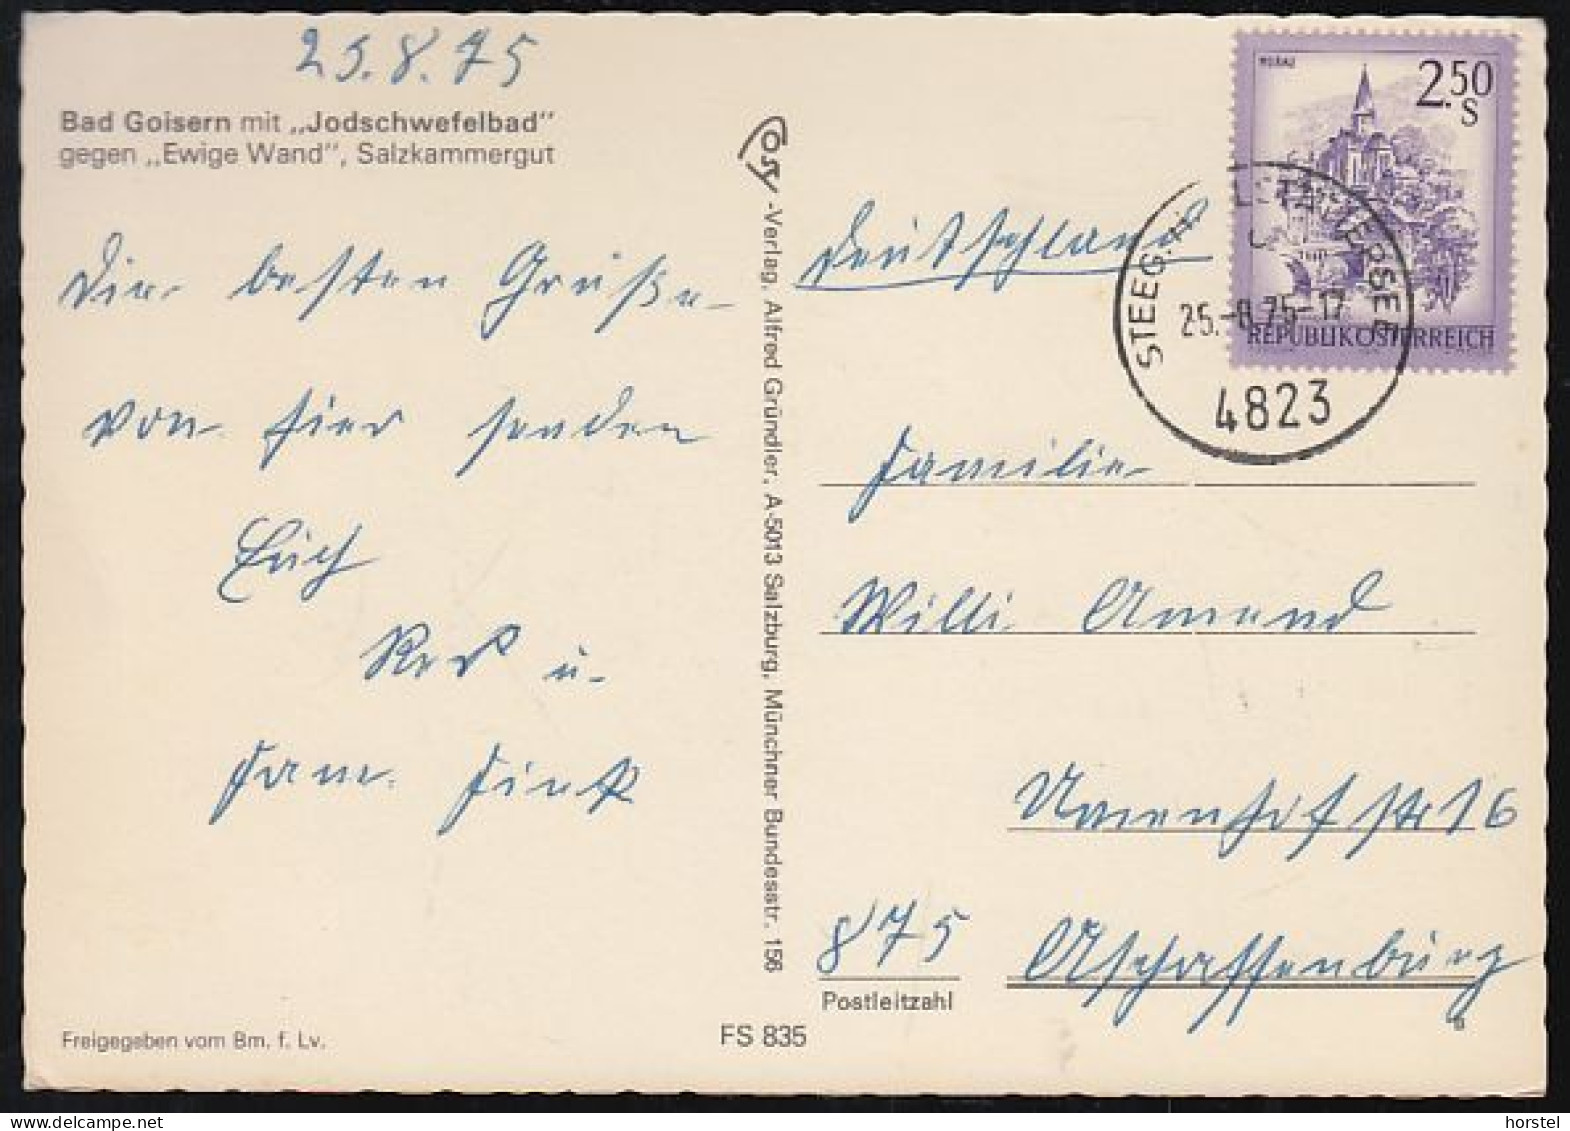 25.8.75
Bad Goisern mit „Jodschwefelbad"
gegen „Ewige Wand", Salzkammergut
Die besten Grüße
von hier senden
Euch
u.
Fam. Fink
Freigegeben vom Bm. f. Lv.
FS 835
Cosy-Verlag, Alfred Gründler, A-5013 Salzburg, Münchner Bundesstr. 156
MURAU
2.50
S
REPUBLIK ÖSTERREICH
STEEG
25.-8.75-17
4823
Deutschland
Familie
Willi Amend
16
875 Aschaffenburg
Postleitzahl
horstel